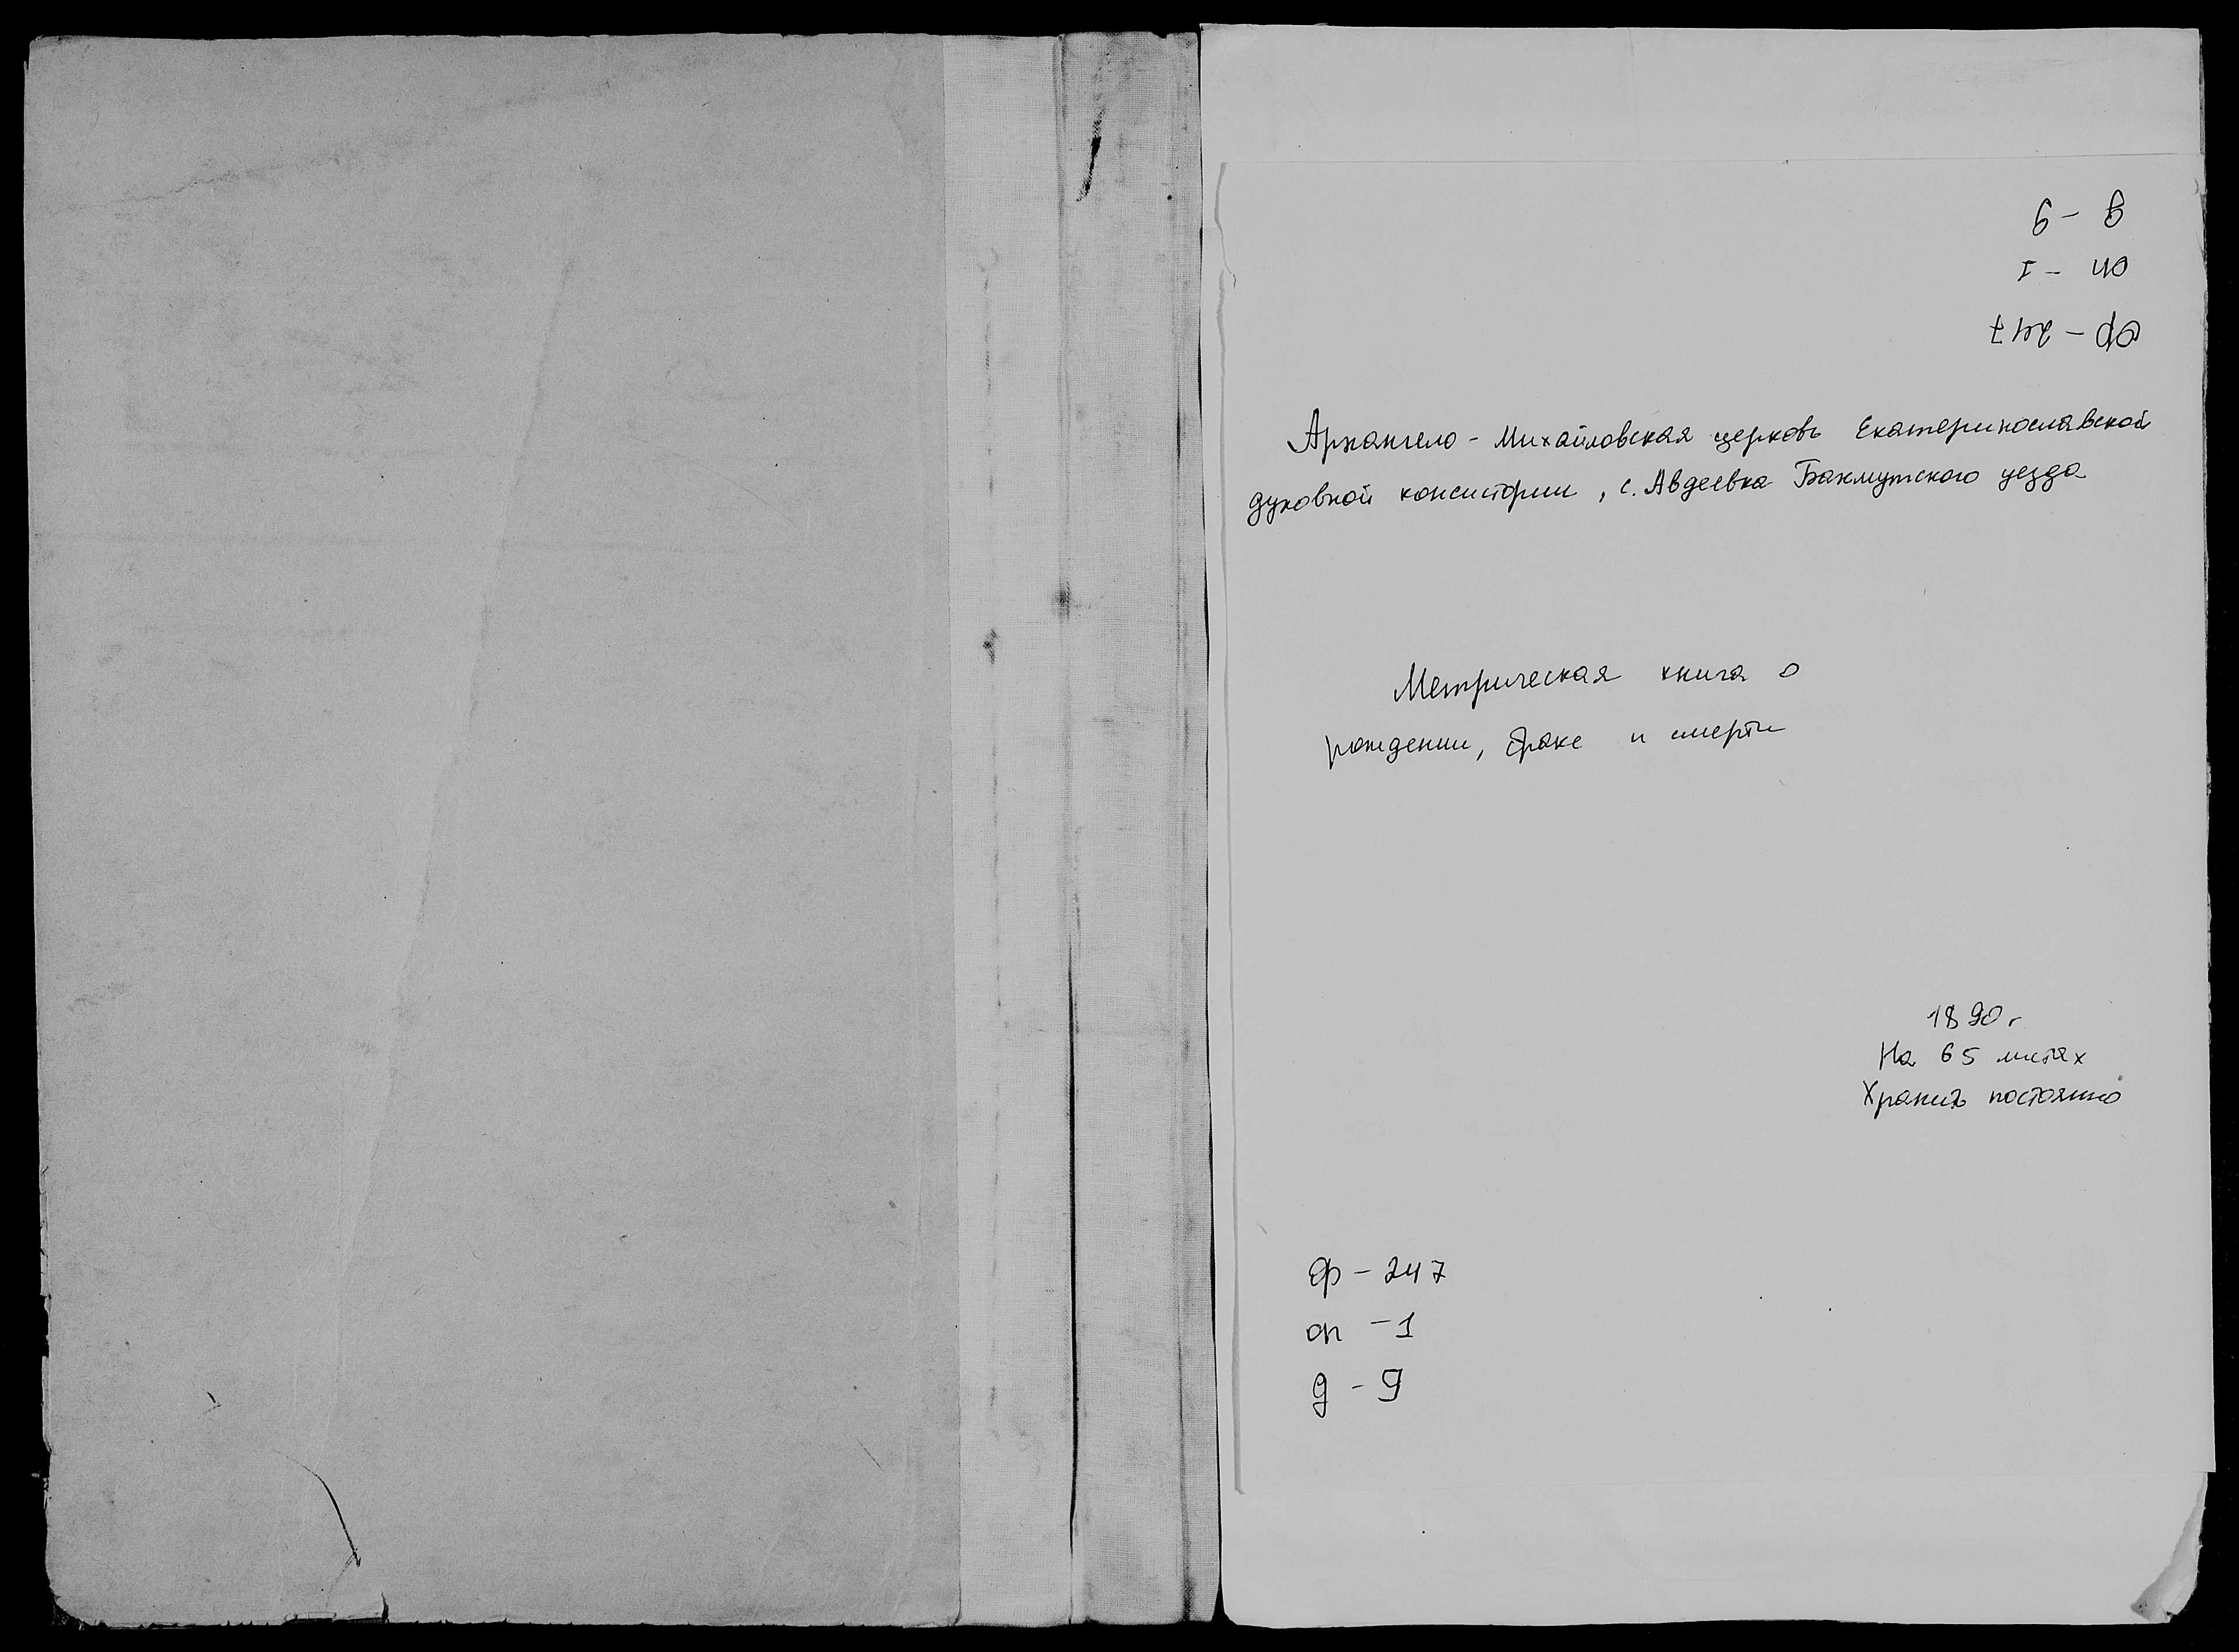 Архангело - Михайловская церковь Екатеринославской
духовной консистории, с. Авдеевка Бахмутского уезда
Метрическая книга о
рождении, браке и смерти
1890 г
На 65 листах
Хранить постоянно
ф - 247
оп - 1
д - 9